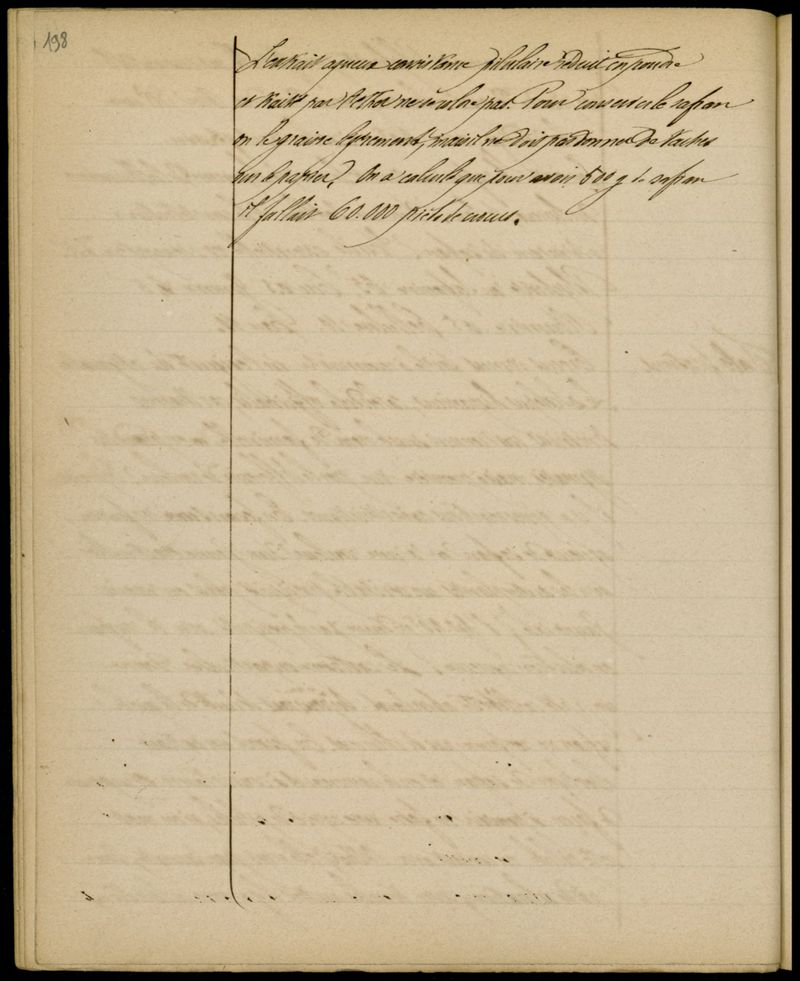 198
L'extrait aqueux consistance pilulaire réduit en poudre
et traité par l'éther ne se colore pas. Pour conserver le safran
on le graisse légèrement, mais il ne doit pas donner de taches
sur le papier. On a calculé que pour avoir 500 g de safran
il fallait 60.000 pieds de crocus.